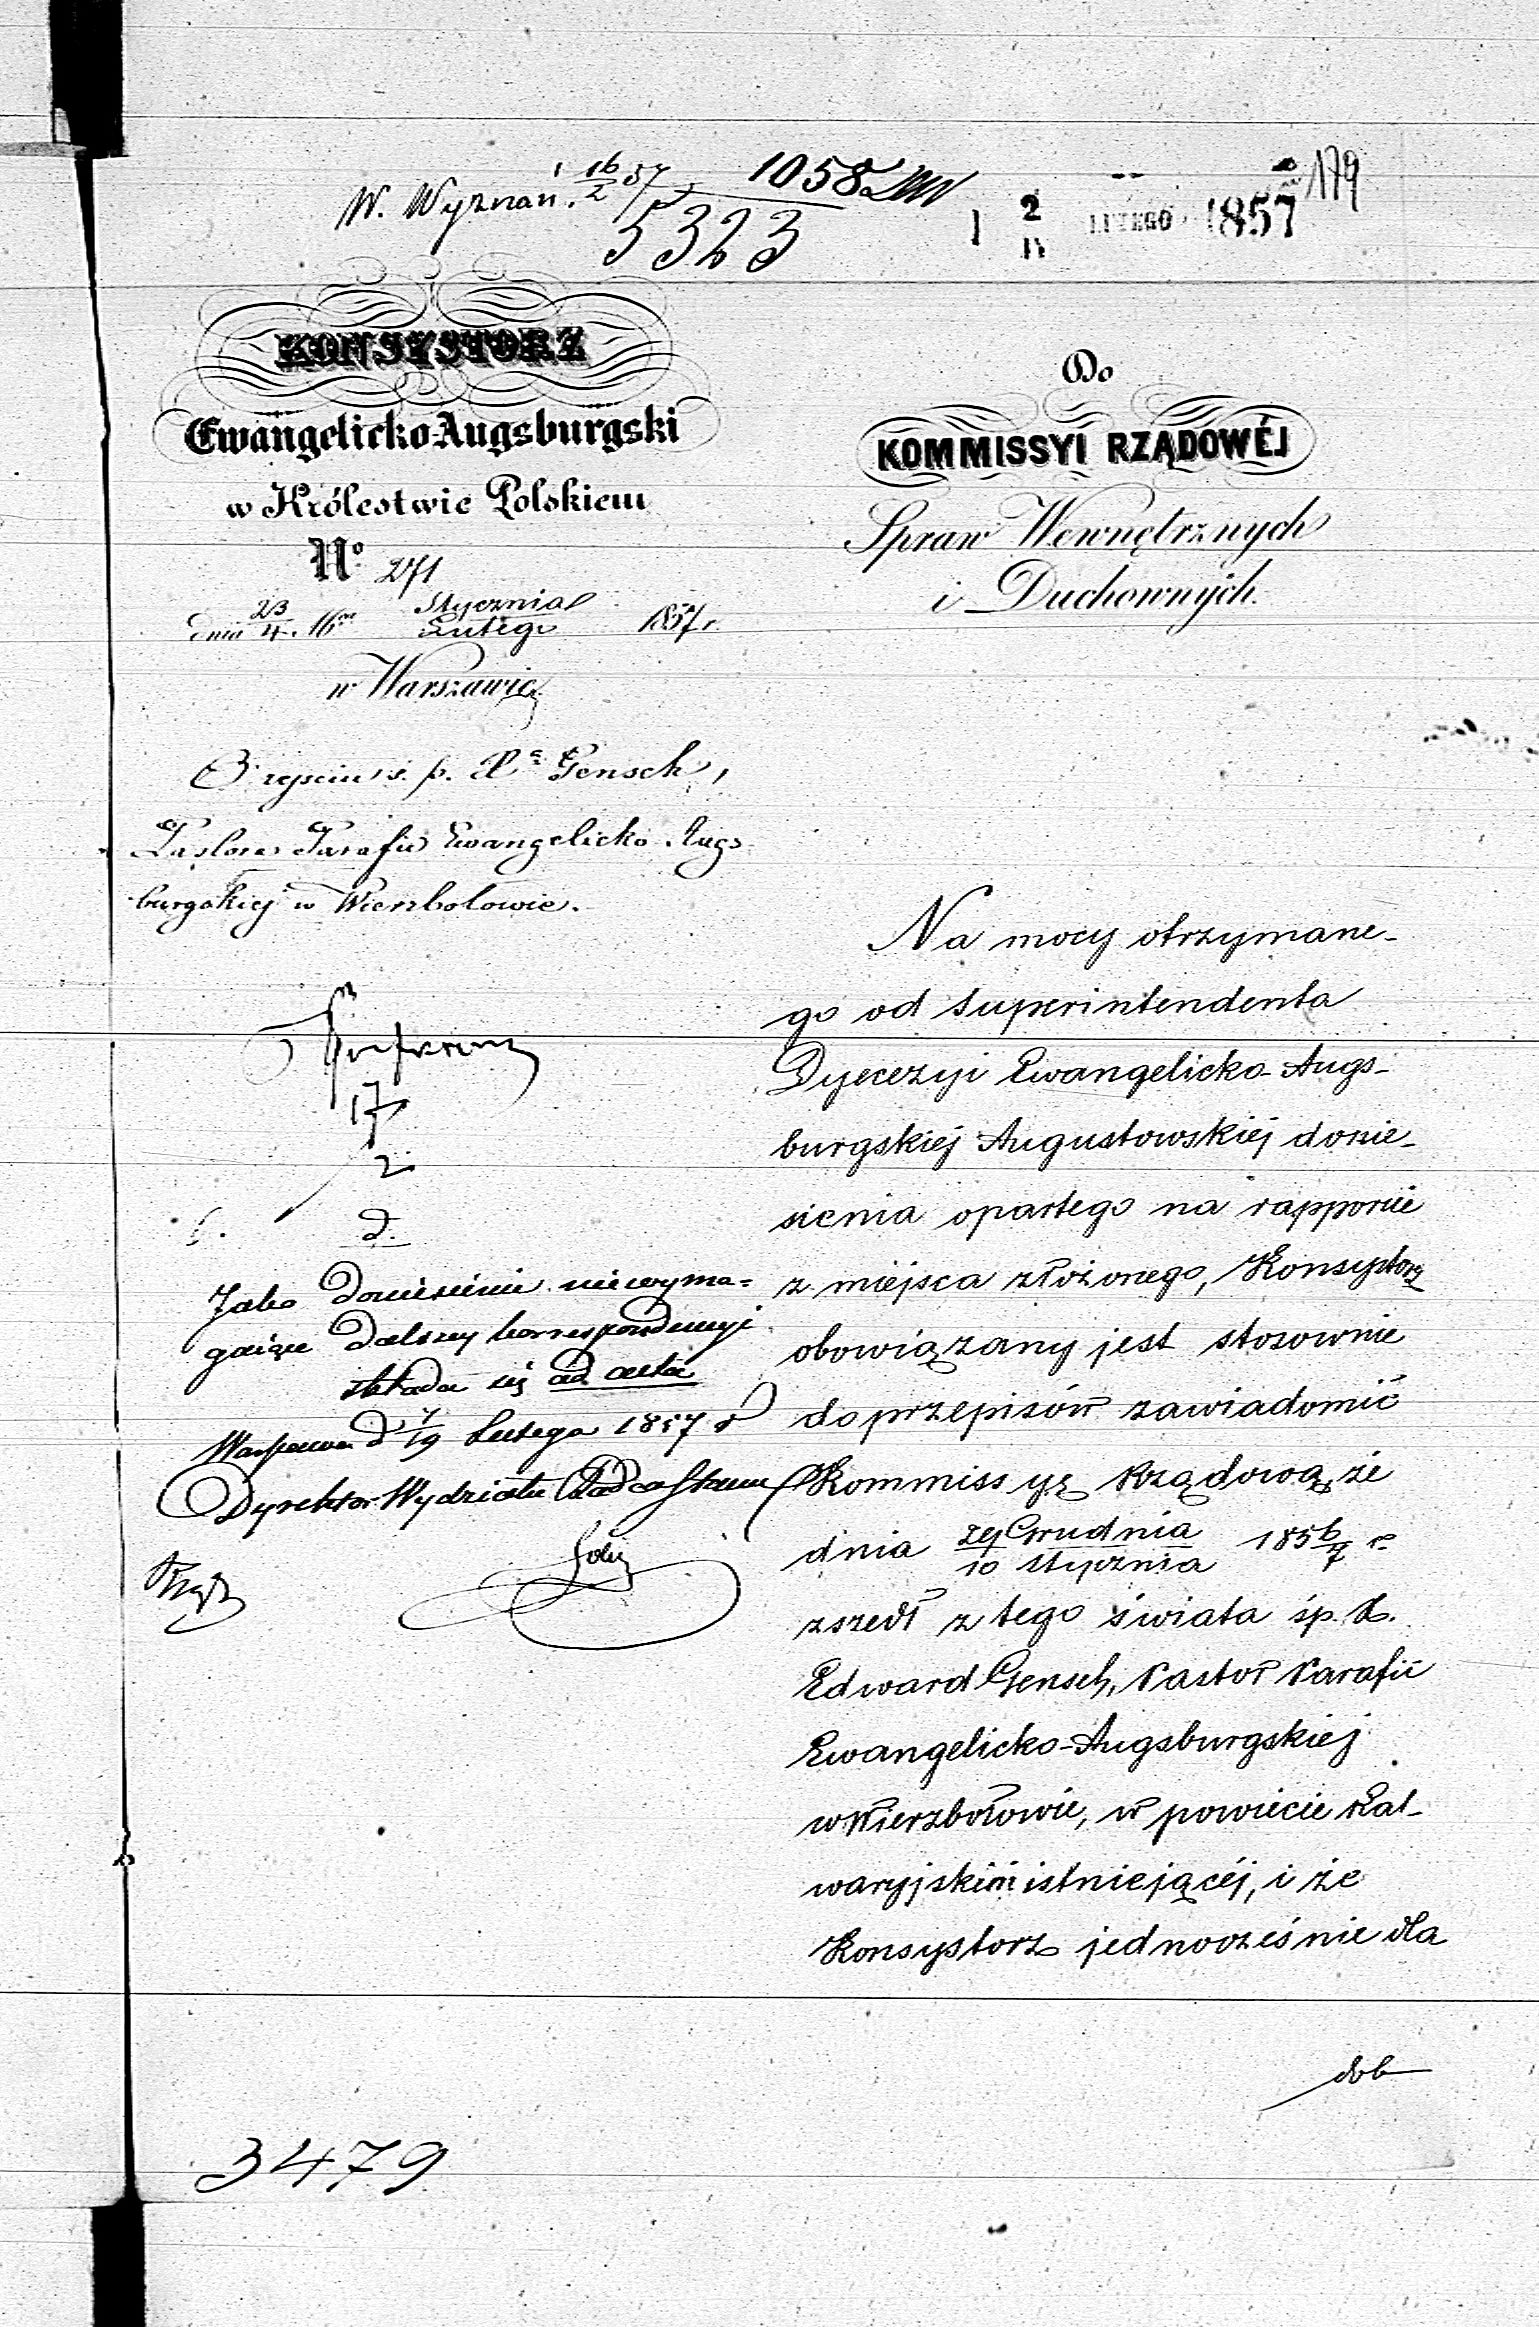 W. Wyznań. 16/2 57
1058
5323
2 LUTEGO 1857
179
KONSYSTORZ
Ewangelicko Augsburgski
w Królestwie Polskiem
No 271
dnia 23/4. 16 Stycznia/Lutego 1857 r.
w Warszawie
O zejściu ś. p. X. Gensch,
Pastora Parafii Ewangelicko Augs-
burgskiej w Wierzbołowie.
17
2
d.
Jako doniesienie niewyma-
gające dalszey korrespondencyi
składa się ad acta
Warszawa d 7/19 Lutego 1857 r
Dyrektor Wydziału Radca Stanu
3479
Do
KOMMISSYI RZĄDOWÉJ
Spraw Wewnętrznych
i Duchownych.
Na mocy otrzymane-
go od Superintendenta
Dyecezyi Ewangelicko-Augs-
burgskiej Augustowskiej donie-
sienia opartego na rapporcie
z miejsca złożonego, Konsystorz
obowiązany jest stosownie
do przepisów zawiadomić
Kommissyę Rządową, że
dnia 29 Grudnia/10 Stycznia 1856/7 r.
zszedł z tego świata śp. X.
Edward Gensch, Pastor Parafii
Ewangelicko-Augsburgskiej
w Wierzbołowie, w powiecie Kal-
waryjskim istniejącéj, i że
Konsystorz jednocześnie dla
dob